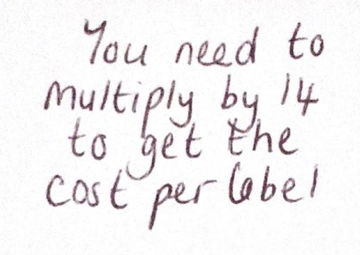 You need to
multiply by 14
to get the
cost per label